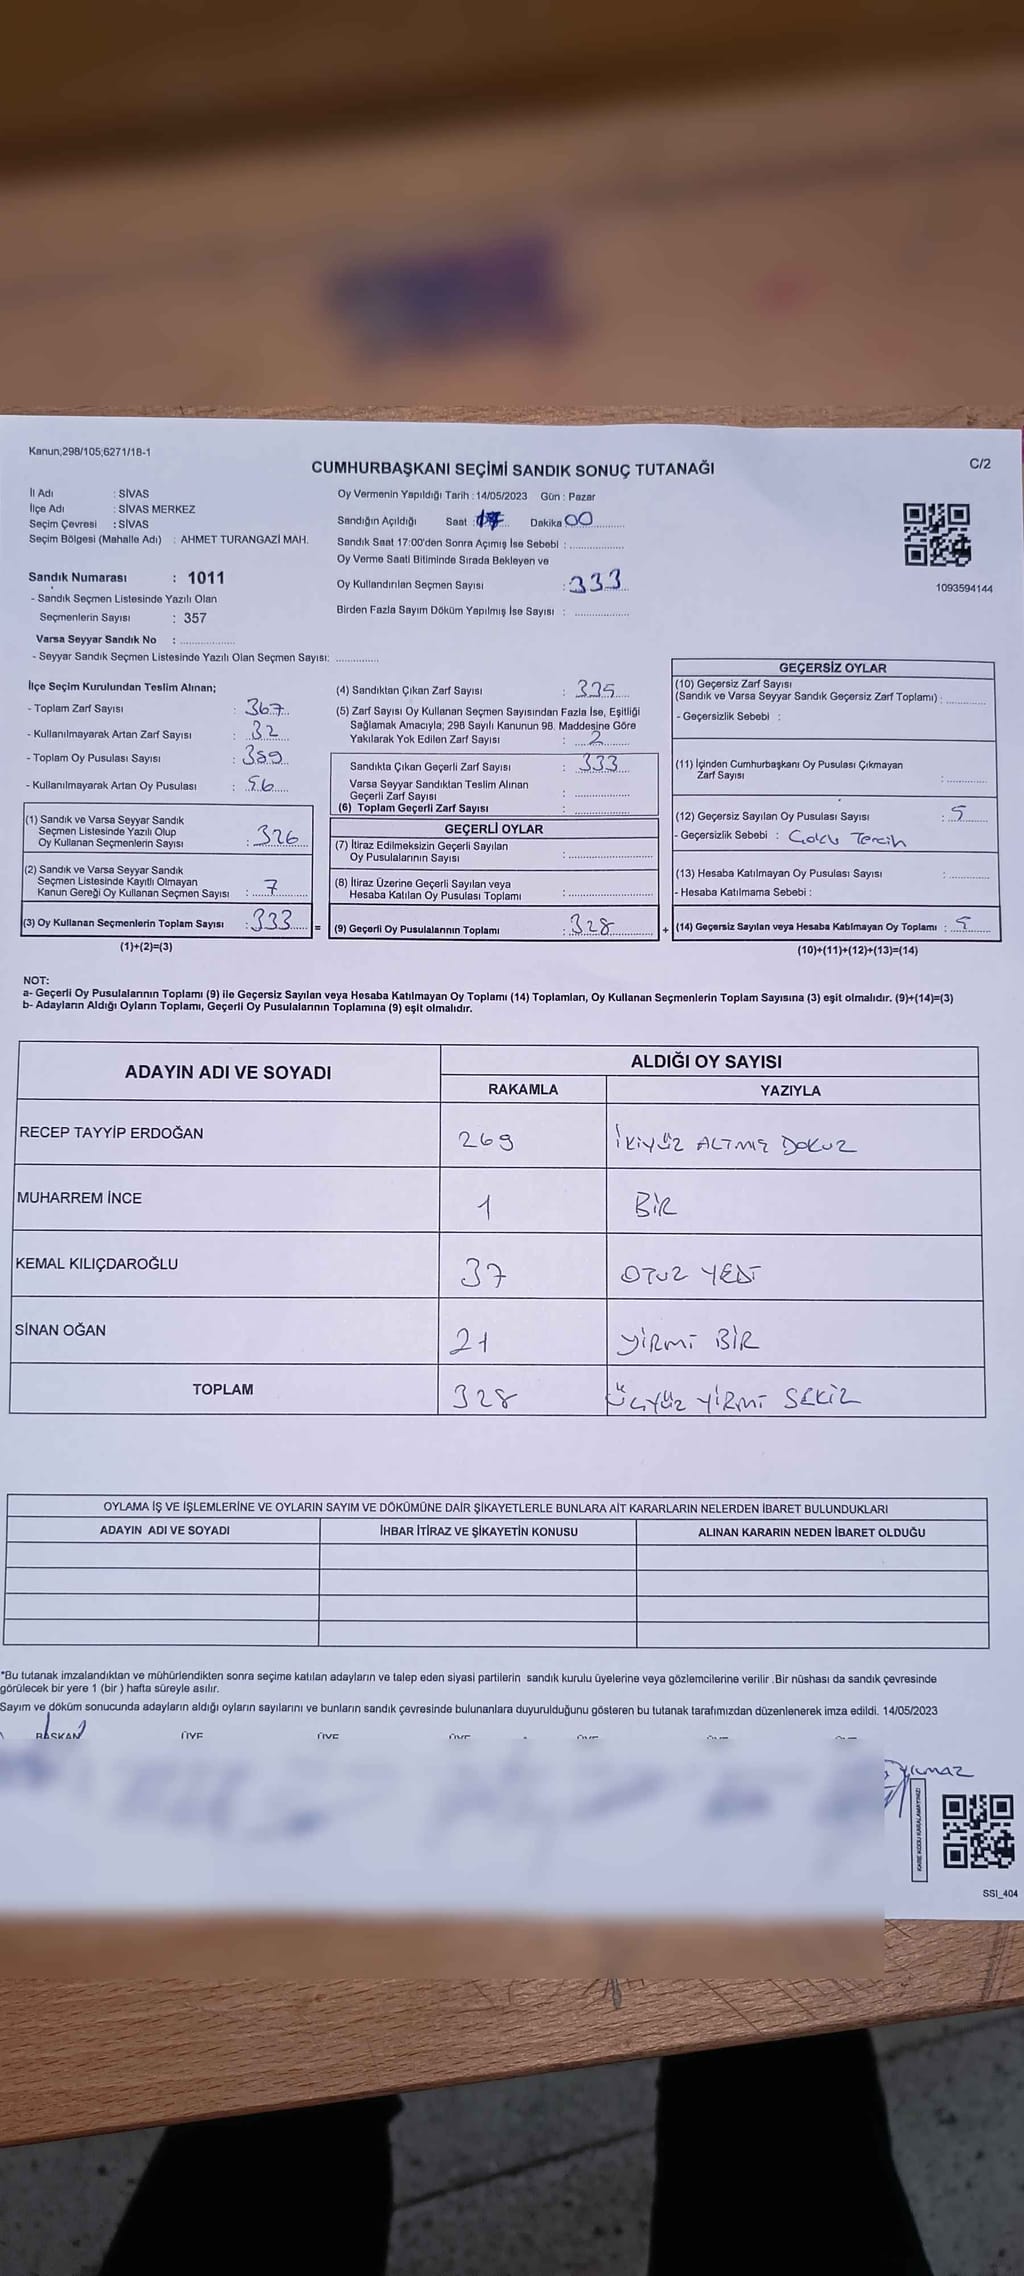 Kanun,298/105,6271/18-1
CUMHURBAŞKANI SEÇİMİ SANDIK SONUÇ TUTANAĞI
C/2
İl Adı : SİVAS
İlçe Adı : SİVAS MERKEZ
Seçim Çevresi : SİVAS
Seçim Bölgesi (Mahalle Adı) : AHMET TURANGAZİ MAH.
Sandık Numarası : 1011
- Sandık Seçmen Listesinde Yazılı Olan
Seçmenlerin Sayısı : 357
Varsa Seyyar Sandık No : ..................
- Seyyar Sandık Seçmen Listesinde Yazılı Olan Seçmen Sayısı: ..............
Oy Vermenin Yapıldığı Tarih : 14/05/2023 Gün : Pazar
Sandığın Açıldığı Saat : 17 Dakika 00
Sandık Saat 17:00'den Sonra Açımış İse Sebebi : ..................
Oy Verme Saati Bitiminde Sırada Bekleyen ve
Oy Kullandırılan Seçmen Sayısı : 333
Birden Fazla Sayım Döküm Yapılmış İse Sayısı : ..................
1093594144
İlçe Seçim Kurulundan Teslim Alınan;
- Toplam Zarf Sayısı : 367
- Kullanılmayarak Artan Zarf Sayısı : 32
- Toplam Oy Pusulası Sayısı : 389
- Kullanılmayarak Artan Oy Pusulası : 56
(1) Sandık ve Varsa Seyyar Sandık
Seçmen Listesinde Yazılı Olup
Oy Kullanan Seçmenlerin Sayısı : 326
(2) Sandık ve Varsa Seyyar Sandık
Seçmen Listesinde Kayıtlı Olmayan
Kanun Gereği Oy Kullanan Seçmen Sayısı : 7
(3) Oy Kullanan Seçmenlerin Toplam Sayısı : 333 =
(1)+(2)=(3)
(4) Sandıktan Çıkan Zarf Sayısı : 335
(5) Zarf Sayısı Oy Kullanan Seçmen Sayısından Fazla İse, Eşitliği
Sağlamak Amacıyla; 298 Sayılı Kanunun 98. Maddesine Göre
Yakılarak Yok Edilen Zarf Sayısı : 2
Sandıkta Çıkan Geçerli Zarf Sayısı : 333
Varsa Seyyar Sandıktan Teslim Alınan
Geçerli Zarf Sayısı : ..................
(6) Toplam Geçerli Zarf Sayısı : ..................
GEÇERLİ OYLAR
(7) İtiraz Edilmeksizin Geçerli Sayılan
Oy Pusulalarının Sayısı : ..................
(8) İtiraz Üzerine Geçerli Sayılan veya
Hesaba Katılan Oy Pusulası Toplamı : ..................
(9) Geçerli Oy Pusulalarının Toplamı : 328 +
GEÇERSİZ OYLAR
(10) Geçersiz Zarf Sayısı
(Sandık ve Varsa Seyyar Sandık Geçersiz Zarf Toplamı) : ............
- Geçersizlik Sebebi :
(11) İçinden Cumhurbaşkanı Oy Pusulası Çıkmayan
Zarf Sayısı : ............
(12) Geçersiz Sayılan Oy Pusulası Sayısı : 5
- Geçersizlik Sebebi : Çoklu Tercih
(13) Hesaba Katılmayan Oy Pusulası Sayısı : ............
- Hesaba Katılmama Sebebi :
(14) Geçersiz Sayılan veya Hesaba Katılmayan Oy Toplamı : 5
(10)+(11)+(12)+(13)=(14)
NOT:
a- Geçerli Oy Pusulalarının Toplamı (9) ile Geçersiz Sayılan veya Hesaba Katılmayan Oy Toplamı (14) Toplamları, Oy Kullanan Seçmenlerin Toplam Sayısına (3) eşit olmalıdır. (9)+(14)=(3)
b- Adayların Aldığı Oyların Toplamı, Geçerli Oy Pusulalarının Toplamına (9) eşit olmalıdır.
ADAYIN ADI VE SOYADI ALDIĞI OY SAYISI
RAKAMLA YAZIYLA
RECEP TAYYİP ERDOĞAN 269 İKİYÜZ ALTMIŞ DOKUZ
MUHARREM İNCE 1 BİR
KEMAL KILIÇDAROĞLU 37 OTUZ YEDİ
SİNAN OĞAN 21 YİRMİ BİR
TOPLAM 328 ÜÇYÜZ YİRMİ SEKİZ
OYLAMA İŞ VE İŞLEMLERİNE VE OYLARIN SAYIM VE DÖKÜMÜNE DAİR ŞİKAYETLERLE BUNLARA AİT KARARLARIN NELERDEN İBARET BULUNDUKLARI
ADAYIN ADI VE SOYADI İHBAR İTİRAZ VE ŞİKAYETİN KONUSU ALINAN KARARIN NEDEN İBARET OLDUĞU
*Bu tutanak imzalandıktan ve mühürlendikten sonra seçime katılan adayların ve talep eden siyasi partilerin sandık kurulu üyelerine veya gözlemcilerine verilir .Bir nüshası da sandık çevresinde
görülecek bir yere 1 (bir ) hafta süreyle asılır.
Sayım ve döküm sonucunda adayların aldığı oyların sayılarını ve bunların sandık çevresinde bulunanlara duyurulduğunu gösteren bu tutanak tarafımızdan düzenlenerek imza edildi. 14/05/2023
BAŞKAN ÜYE ÜYE ÜYE ÜYE
YILMAZ
KARE KODU KARALAMAYINIZ!
SSI_404